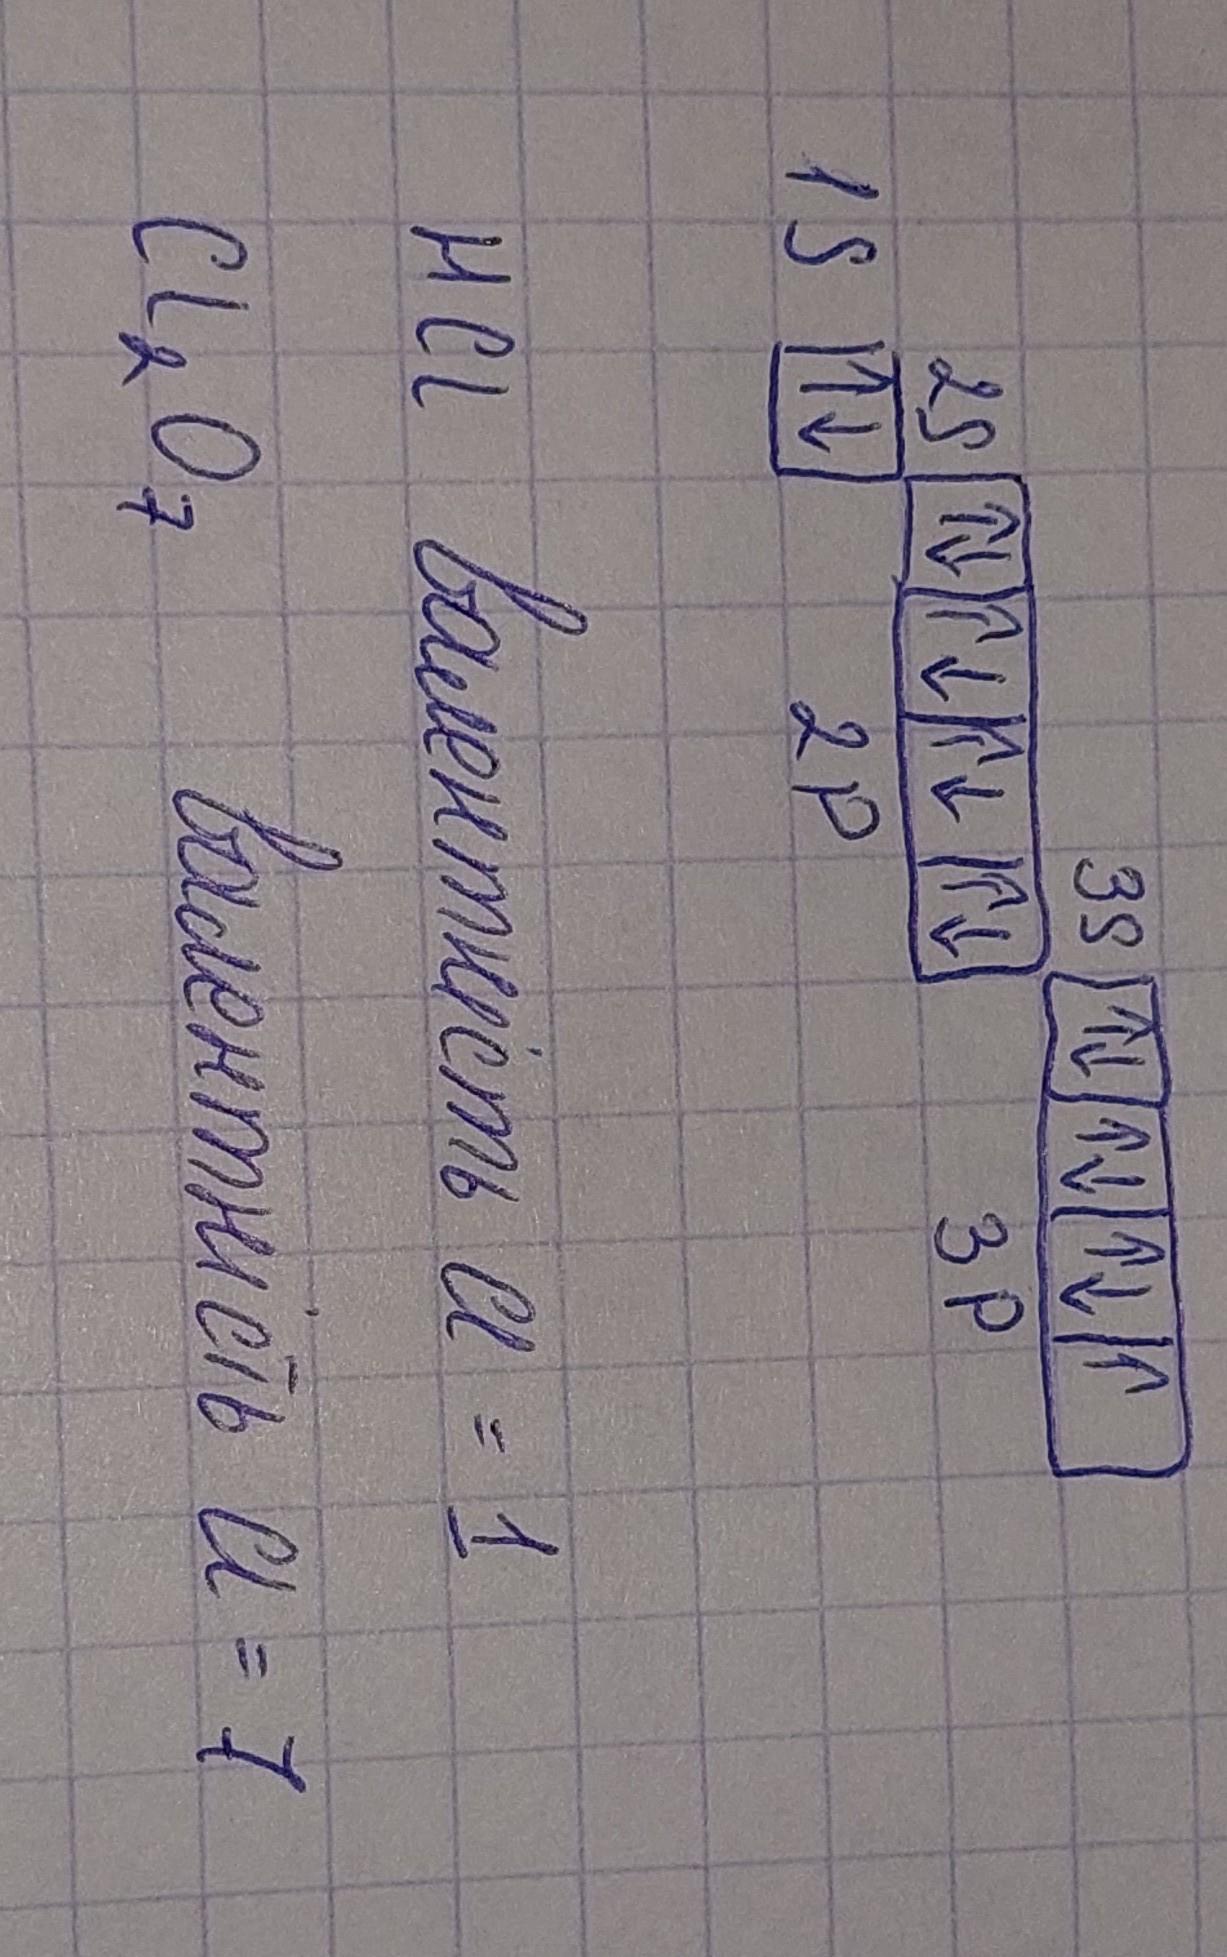 3s ↑↓ ↑↓ ↑↓ ↑
2s ↑↓ ↑↓ ↑↓ ↑↓ 3p
1s ↑↓ 2p
HCl валентність Cl = 1
Cl₂O₇ валентність Cl = 7